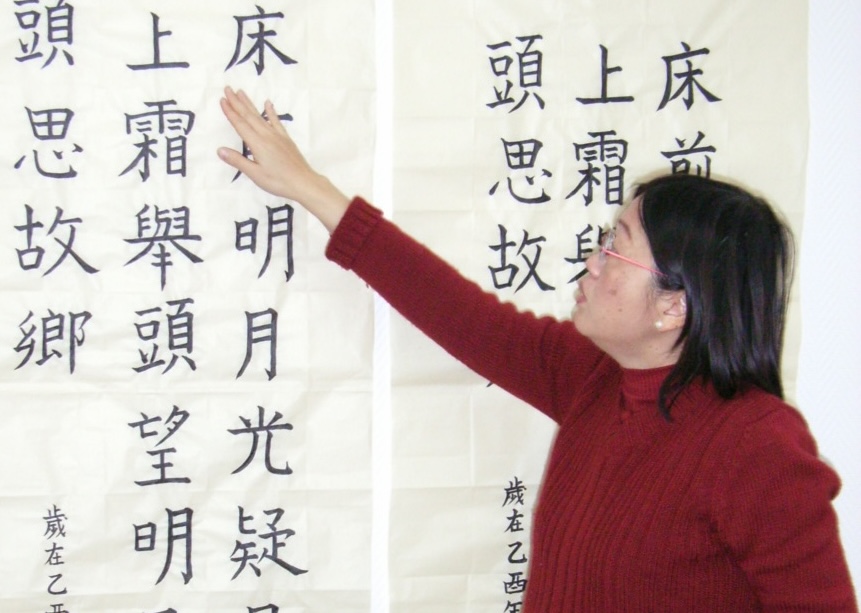 床前
上霜
頭思故
歲在乙酉年
床明月光疑
上霜舉頭望明
頭思故鄉
歲在乙酉